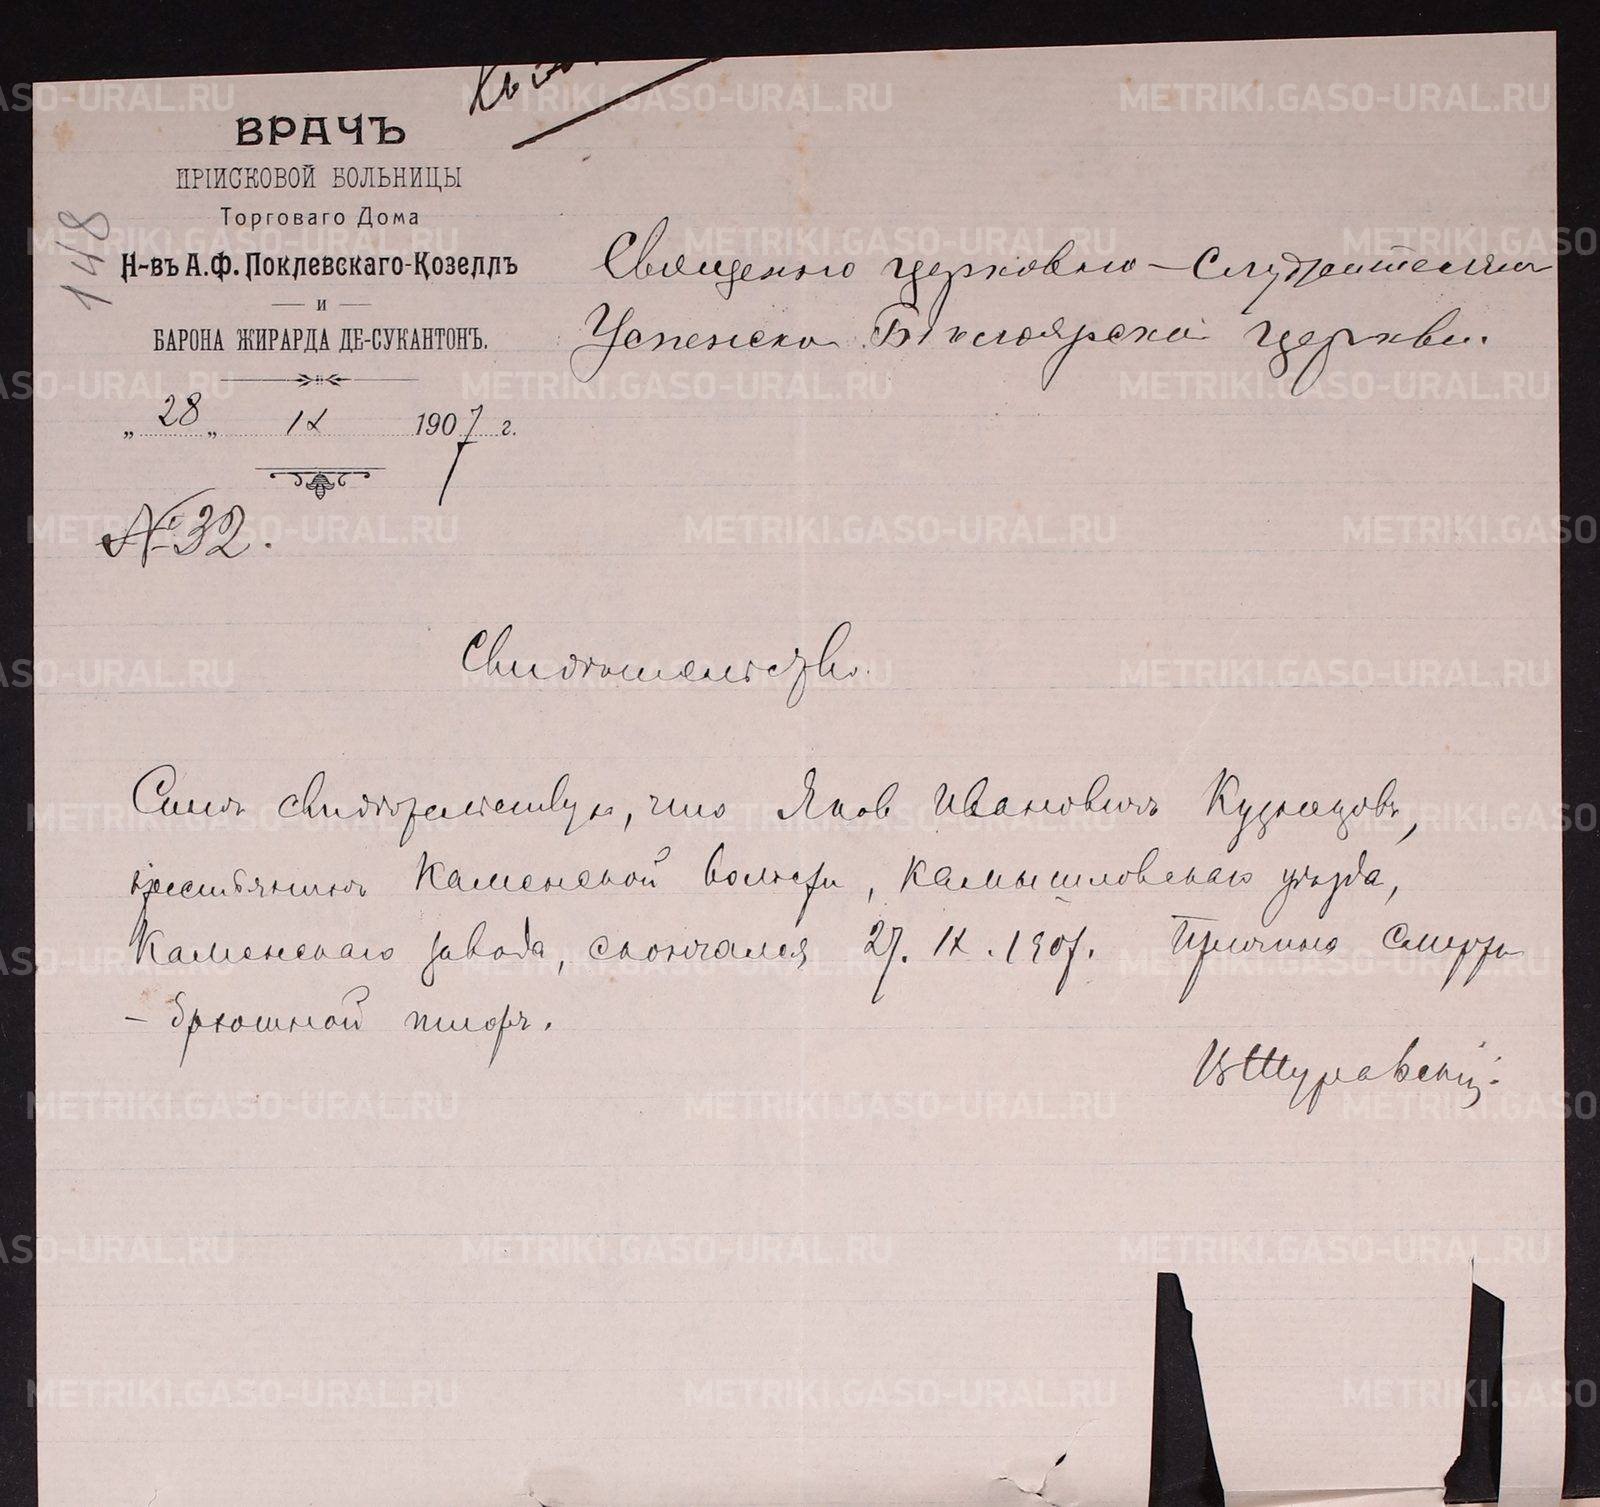 148
ВРАЧЪ
ПРІИСКОВОЙ БОЛЬНИЦЫ
Торговаго Дома
Н-въ А.Ф. Поклевскаго-Козеллъ
и
БАРОНА ЖИРАРДА ДЕ-СУКАНТОНЪ.
„28„ IX 1907 г.
№ 32.
Священно церковно-служителямъ
Успенской церкви.
Свидѣтельство.
Симъ свидѣтельствую, что Яков Ивановичъ Кузнецовъ,
крестьянинъ Каменской волости, Камышловскаго уѣзда,
Каменскаго завода, скончался 27. IX. 1907. Причина смерти
- брюшной тифъ.
METRIKI.GASO-URAL.RU